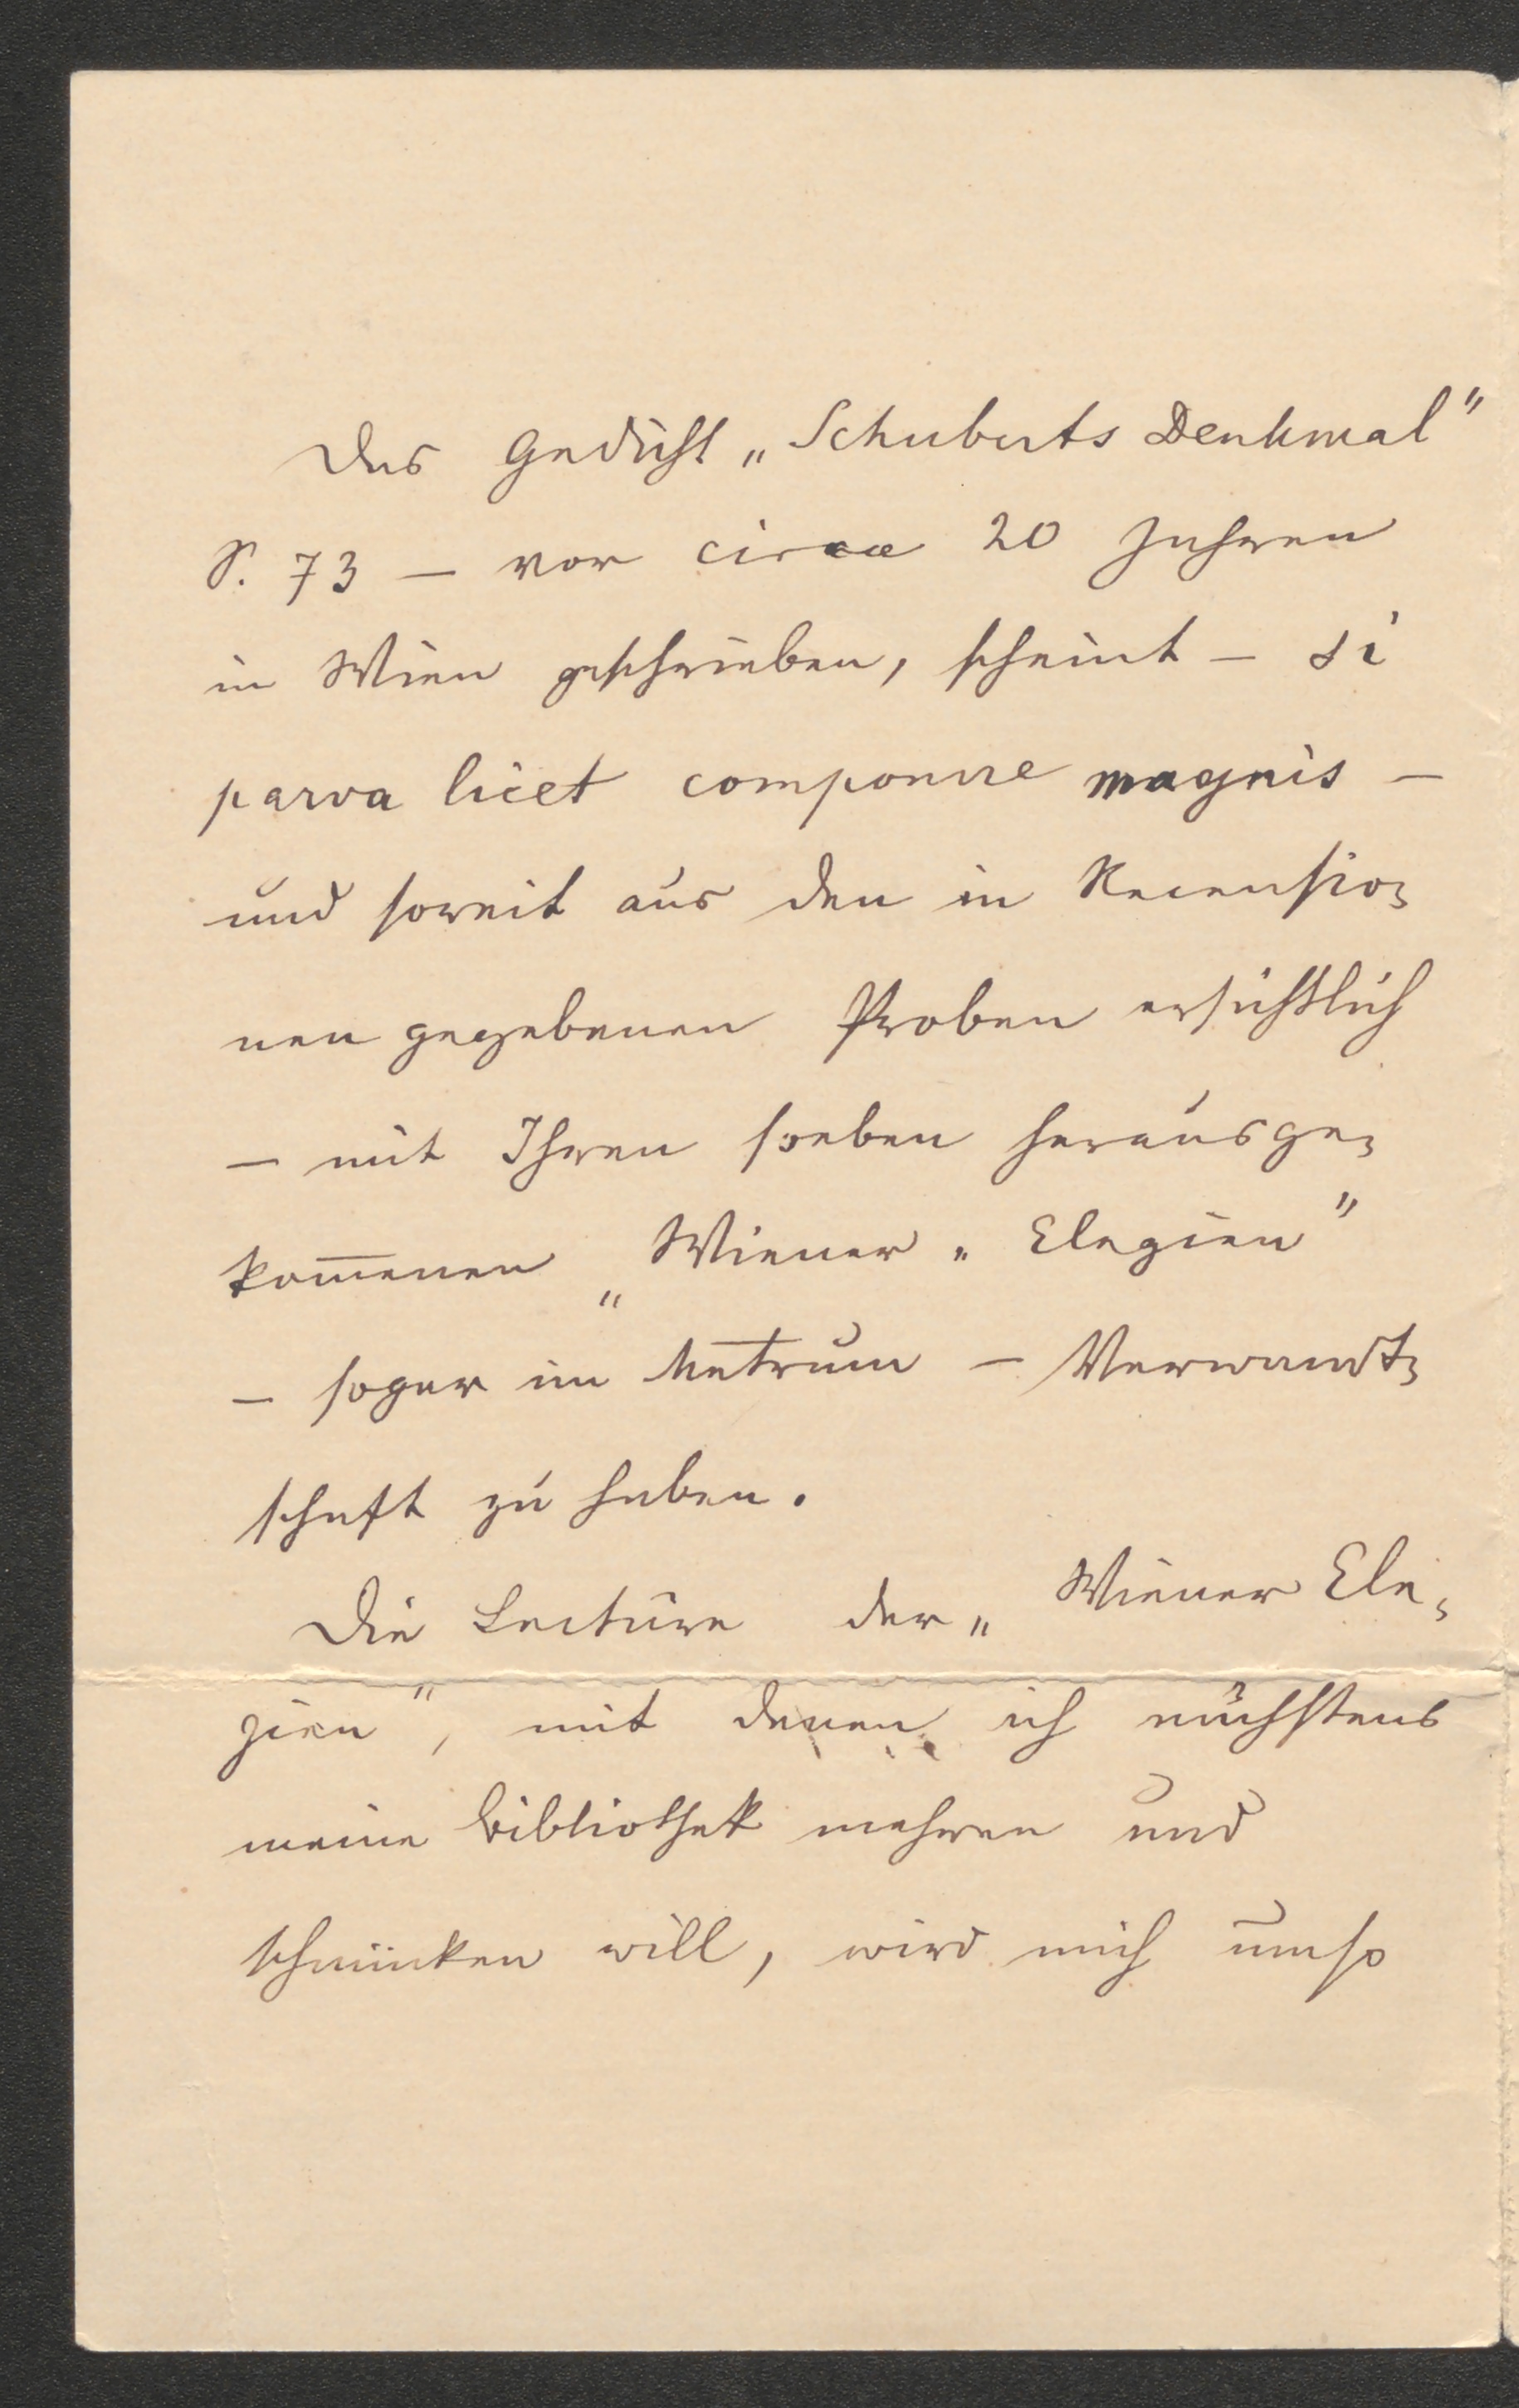 Das Gedicht „Schuberts Denkmal"
S. 73 — vor circa 20 Jahren
in Wien geschrieben, scheint — si
parva licet componere magnis —
und soweit aus den in Recensio-
nen gegebenen Proben ersichtlich
— mit Ihren soeben herausge-
kom̅enen „Wiener „ Elegien"
— sogar im Metrum — Verwandt-
schaft zu haben.
Die Lecture der „Wiener Ele-
gien", mit denen ich nächstens
meine Bibliothek mehren und
schmücken will, wird mich umso